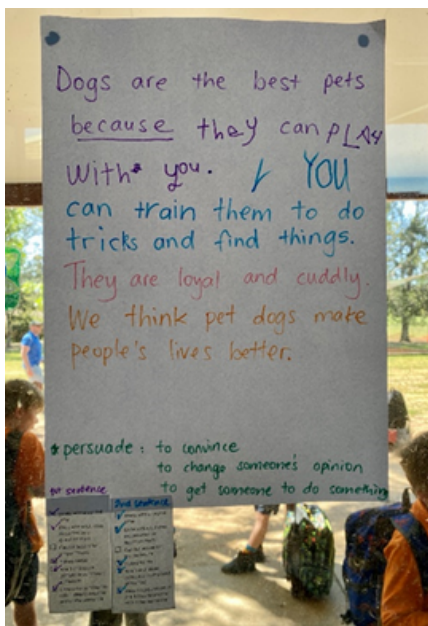 Dogs are the best pets
because they can PLAY
with you. YOU
can train them to do
tricks and find things.
They are loyal and cuddly.
We think pet dogs make
people's lives better.
* persuade : to convince
to change someone's opinion
to get someone to do something
1st sentence
2nd sentence